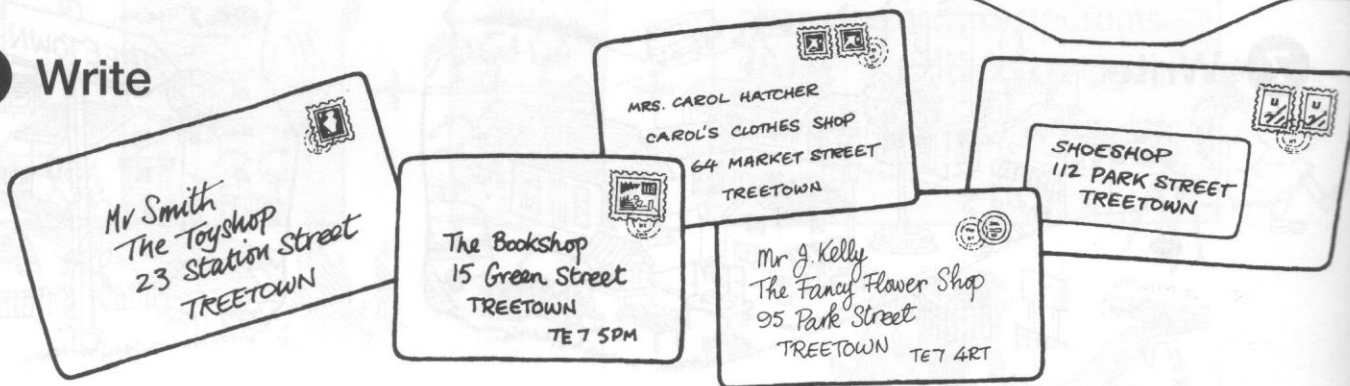 Write
Mr Smith
The Toyshop
23 Station Street
TREETOWN
The Bookshop
15 Green Street
TREETOWN
TE7 5PM
MRS. CAROL HATCHER
CAROL'S CLOTHES SHOP
64 MARKET STREET
TREETOWN
Mr J. Kelly
The Fancy Flower Shop
95 Park Street
TREETOWN TE7 4RT
SHOESHOP
112 PARK STREET
TREETOWN